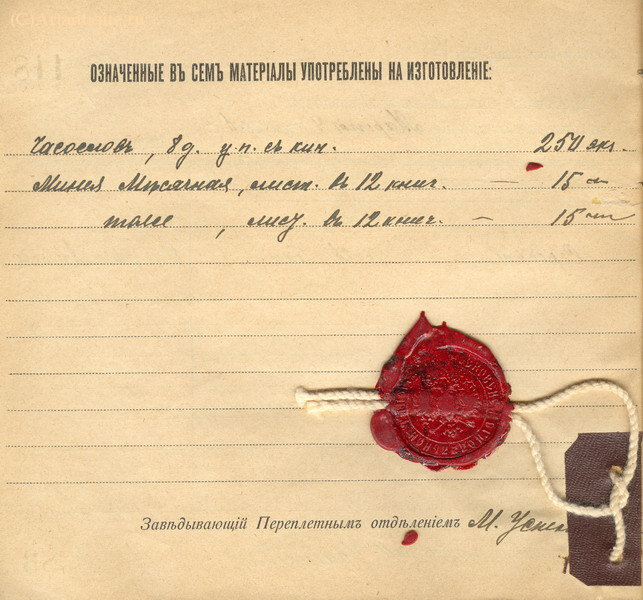 ОЗНАЧЕННЫЕ ВЪ СЕМЪ МАТЕРІАЛЫ УПОТРЕБЛЕНЫ НА ИЗГОТОВЛЕНІЕ:
Часословъ, 8 д. у п. съ кин. 250 экз.
Минея Мѣсячная, лист. въ 12 книг. — 15 —
тоже, лист. въ 12 книг. — 15 —
Завѣдывающій Переплетнымъ отдѣленіемъ М.